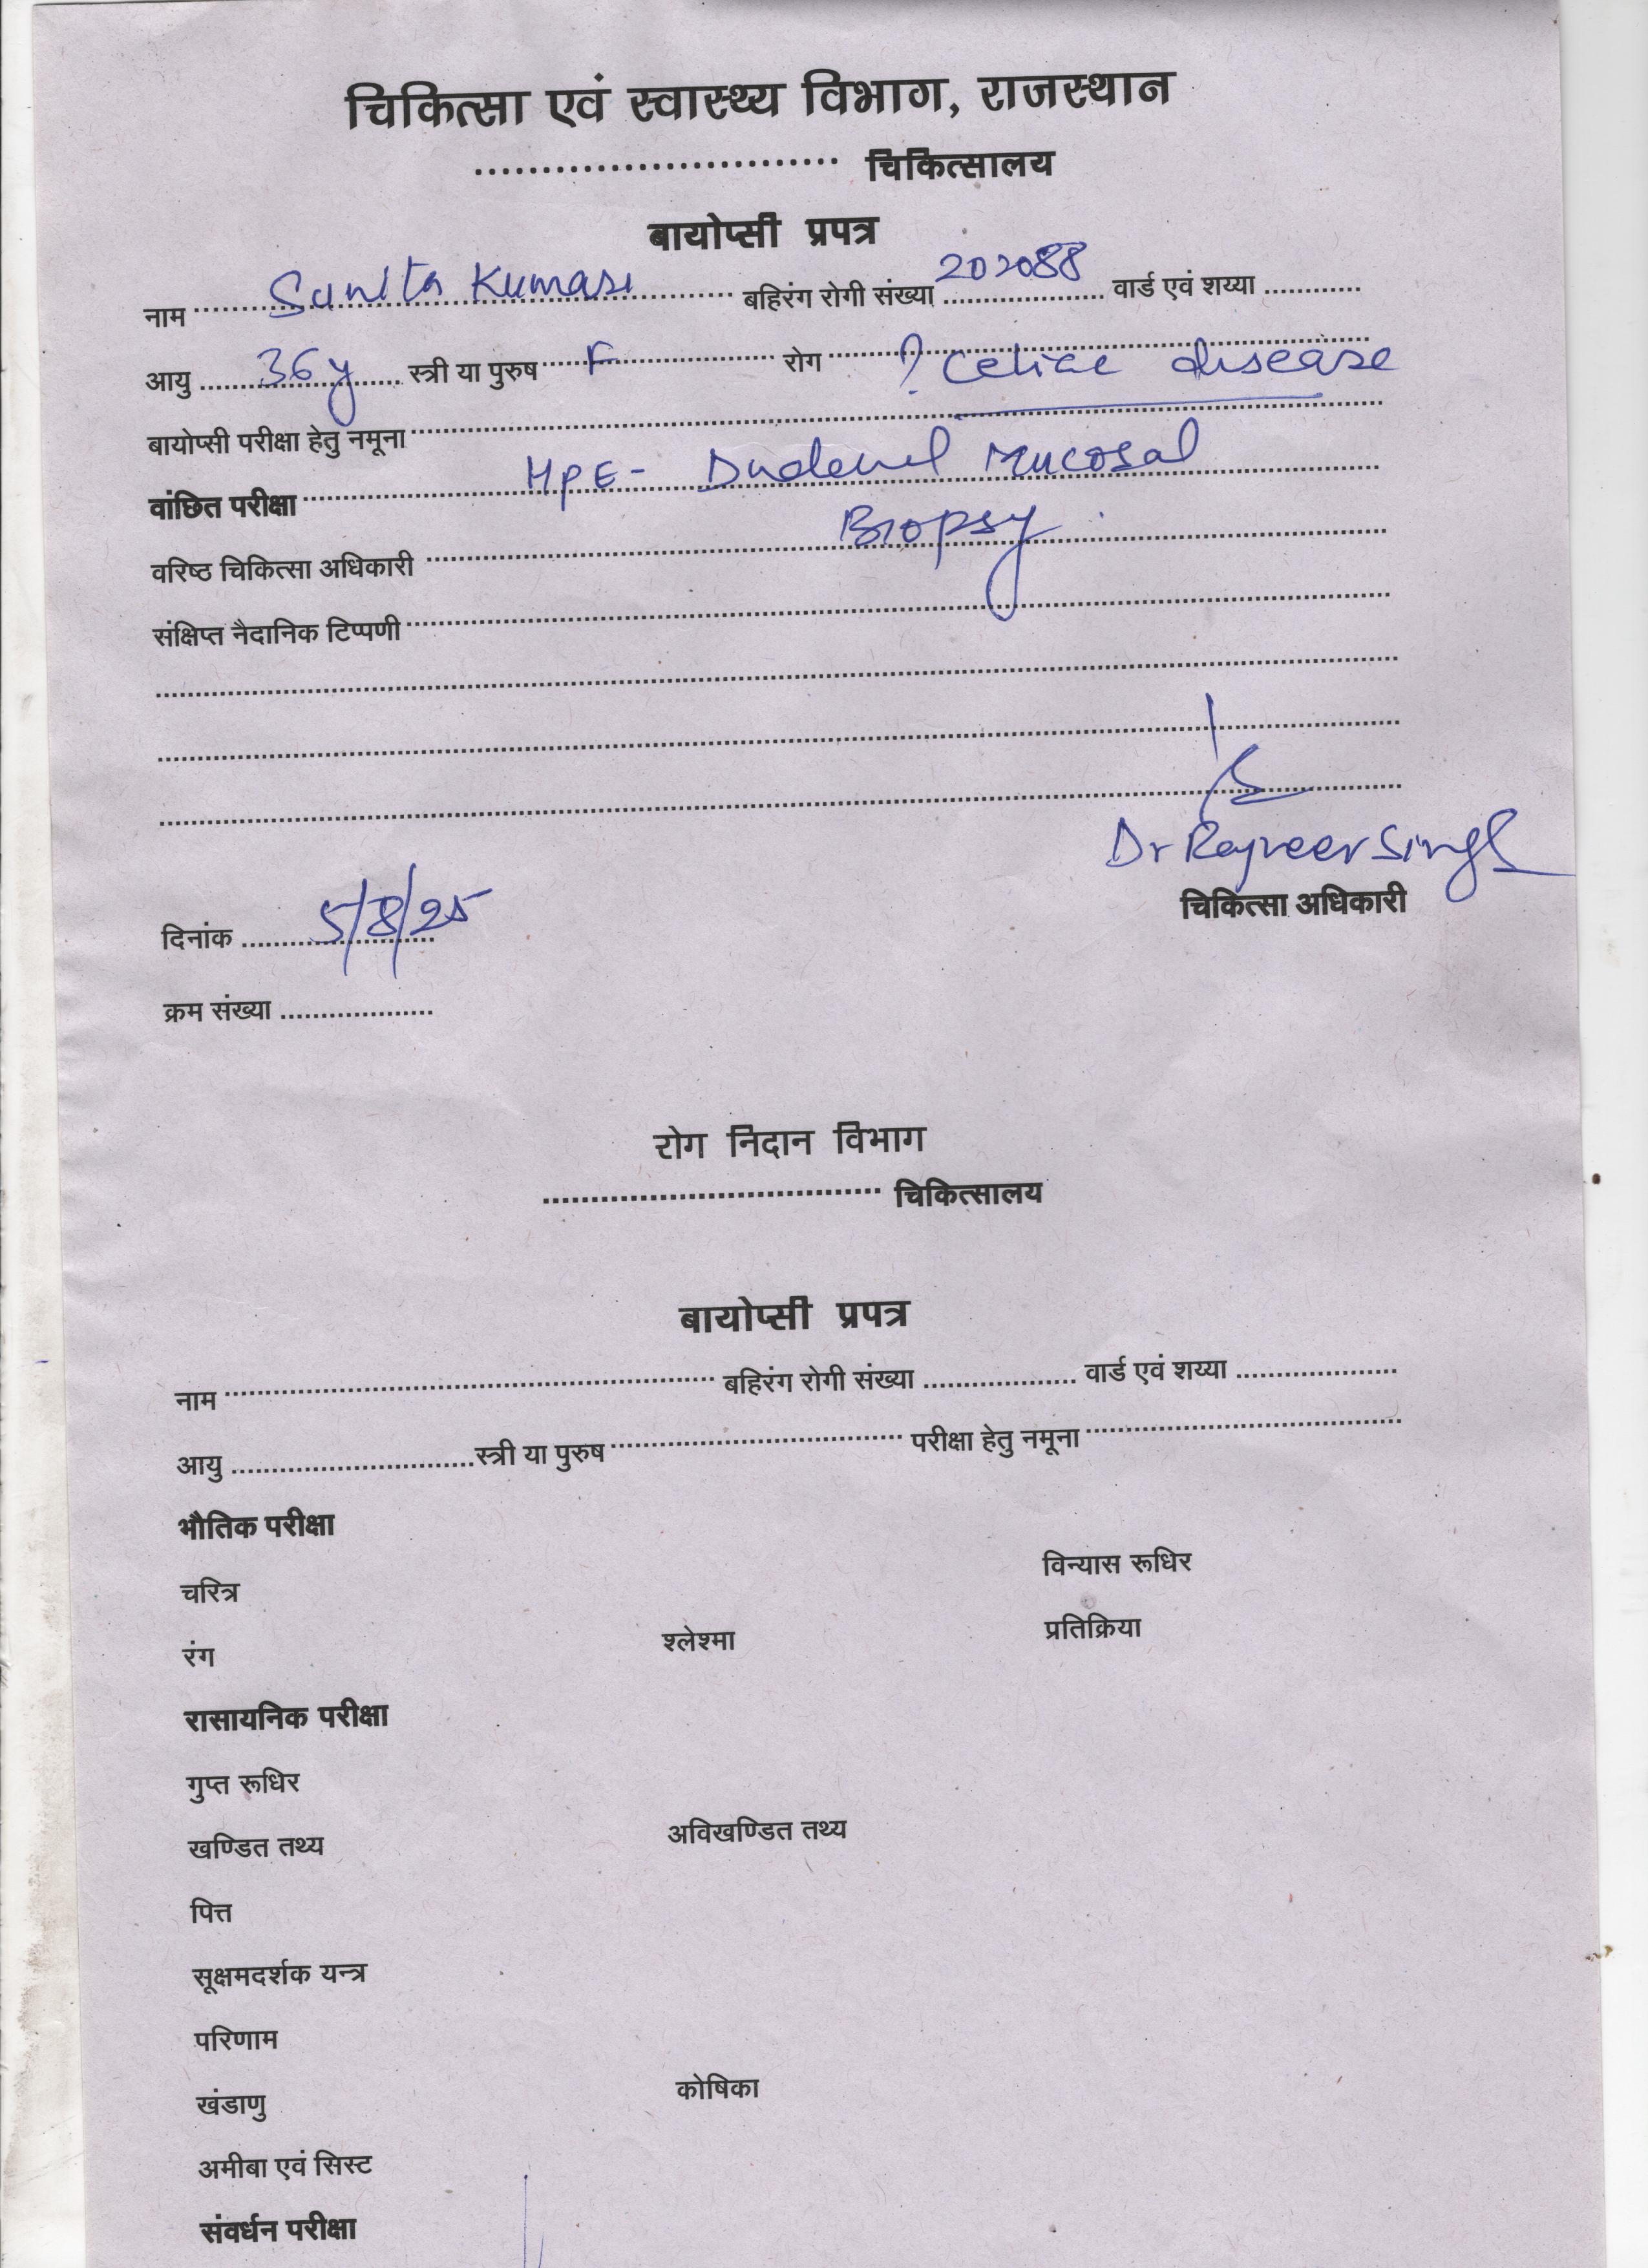 चिकित्सा एवं स्वास्थ्य विभाग, राजस्थान
........................... चिकित्सालय
बायोप्सी प्रपत्र
नाम Sunita Kumari बहिरंग रोगी संख्या 202088 वार्ड एवं शय्या ............
आयु 36y स्त्री या पुरुष F रोग ? Celiac disease
बायोप्सी परीक्षा हेतु नमूना
वांछित परीक्षा HPE - Duodenal Mucosal
वरिष्ठ चिकित्सा अधिकारी Biopsy
संक्षिप्त नैदानिक टिप्पणी
Dr Rajveer Singh
चिकित्सा अधिकारी
दिनांक 5/8/25
क्रम संख्या ...................
रोग निदान विभाग
................................... चिकित्सालय
बायोप्सी प्रपत्र
नाम ........ बहिरंग रोगी संख्या ................... वार्ड एवं शय्या ....................
आयु ..............................स्त्री या पुरुष ........ परीक्षा हेतु नमूना ........
भौतिक परीक्षा
चरित्र विन्यास रूधिर
रंग श्लेश्मा प्रतिक्रिया
रासायनिक परीक्षा
गुप्त रूधिर
खण्डित तथ्य अविखण्डित तथ्य
पित्त
सूक्षमदर्शक यन्त्र
परिणाम
खंडाणु कोषिका
अमीबा एवं सिस्ट
संवर्धन परीक्षा